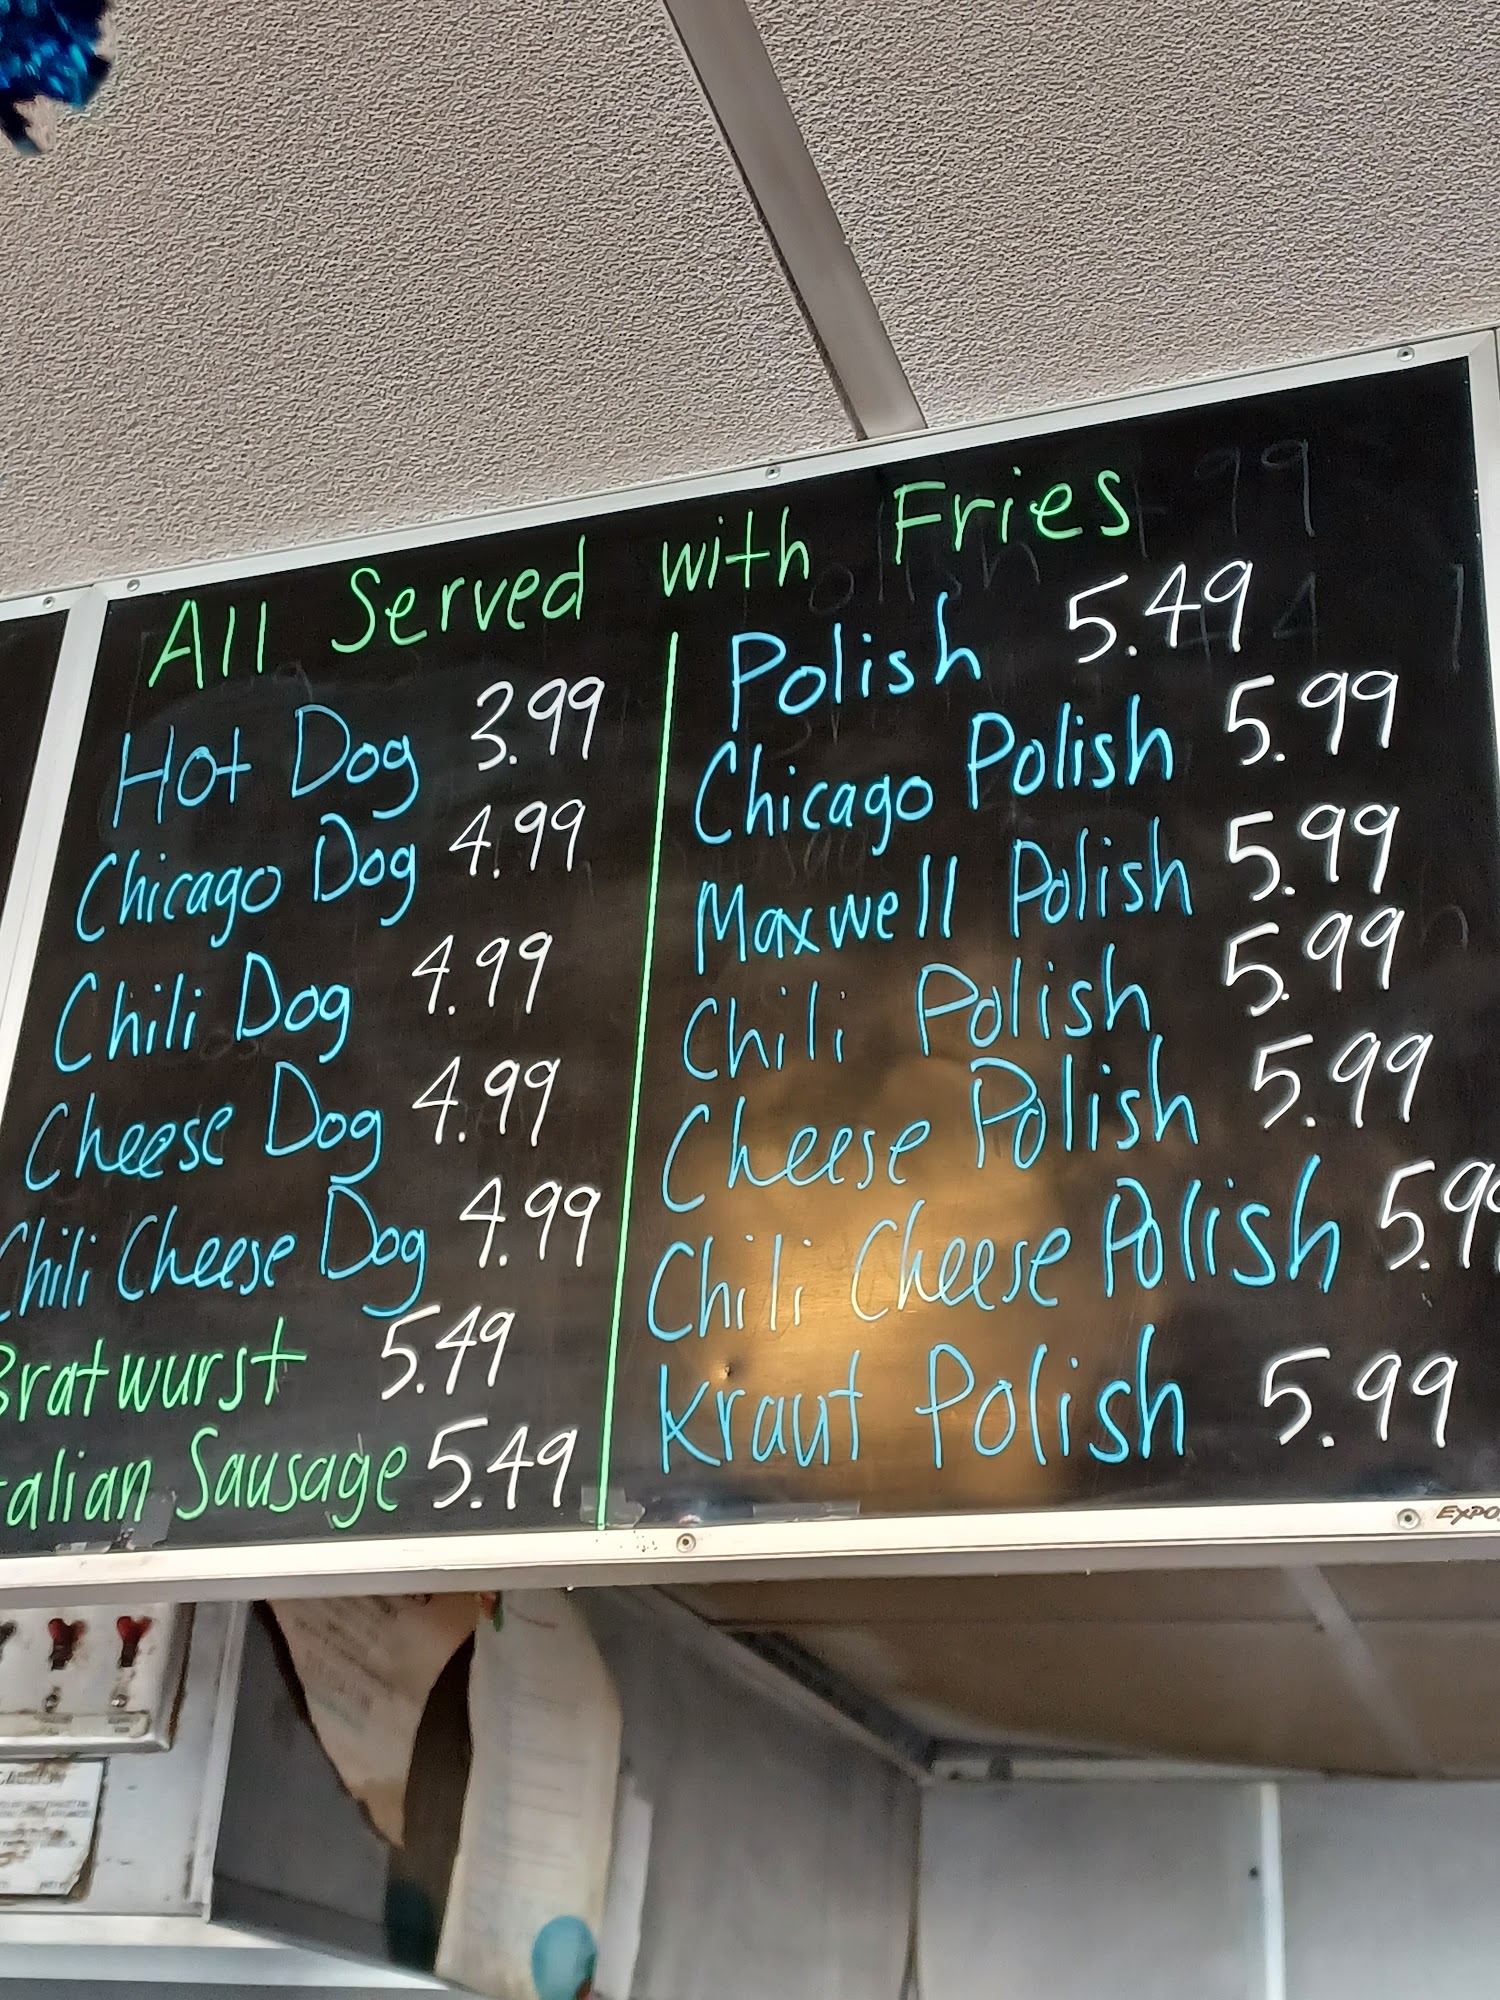 All Served with Fries
Hot Dog 3.99
Chicago Dog 4.99
Chili Dog 4.99
Cheese Dog 4.99
Chili Cheese Dog 4.99
Bratwurst 5.49
talian Sausage 5.49
Polish 5.49
Chicago Polish 5.99
Maxwell Polish 5.99
Chili Polish 5.99
Cheese Polish 5.99
Chili Cheese Polish 5.99
Kraut Polish 5.99
EXPO